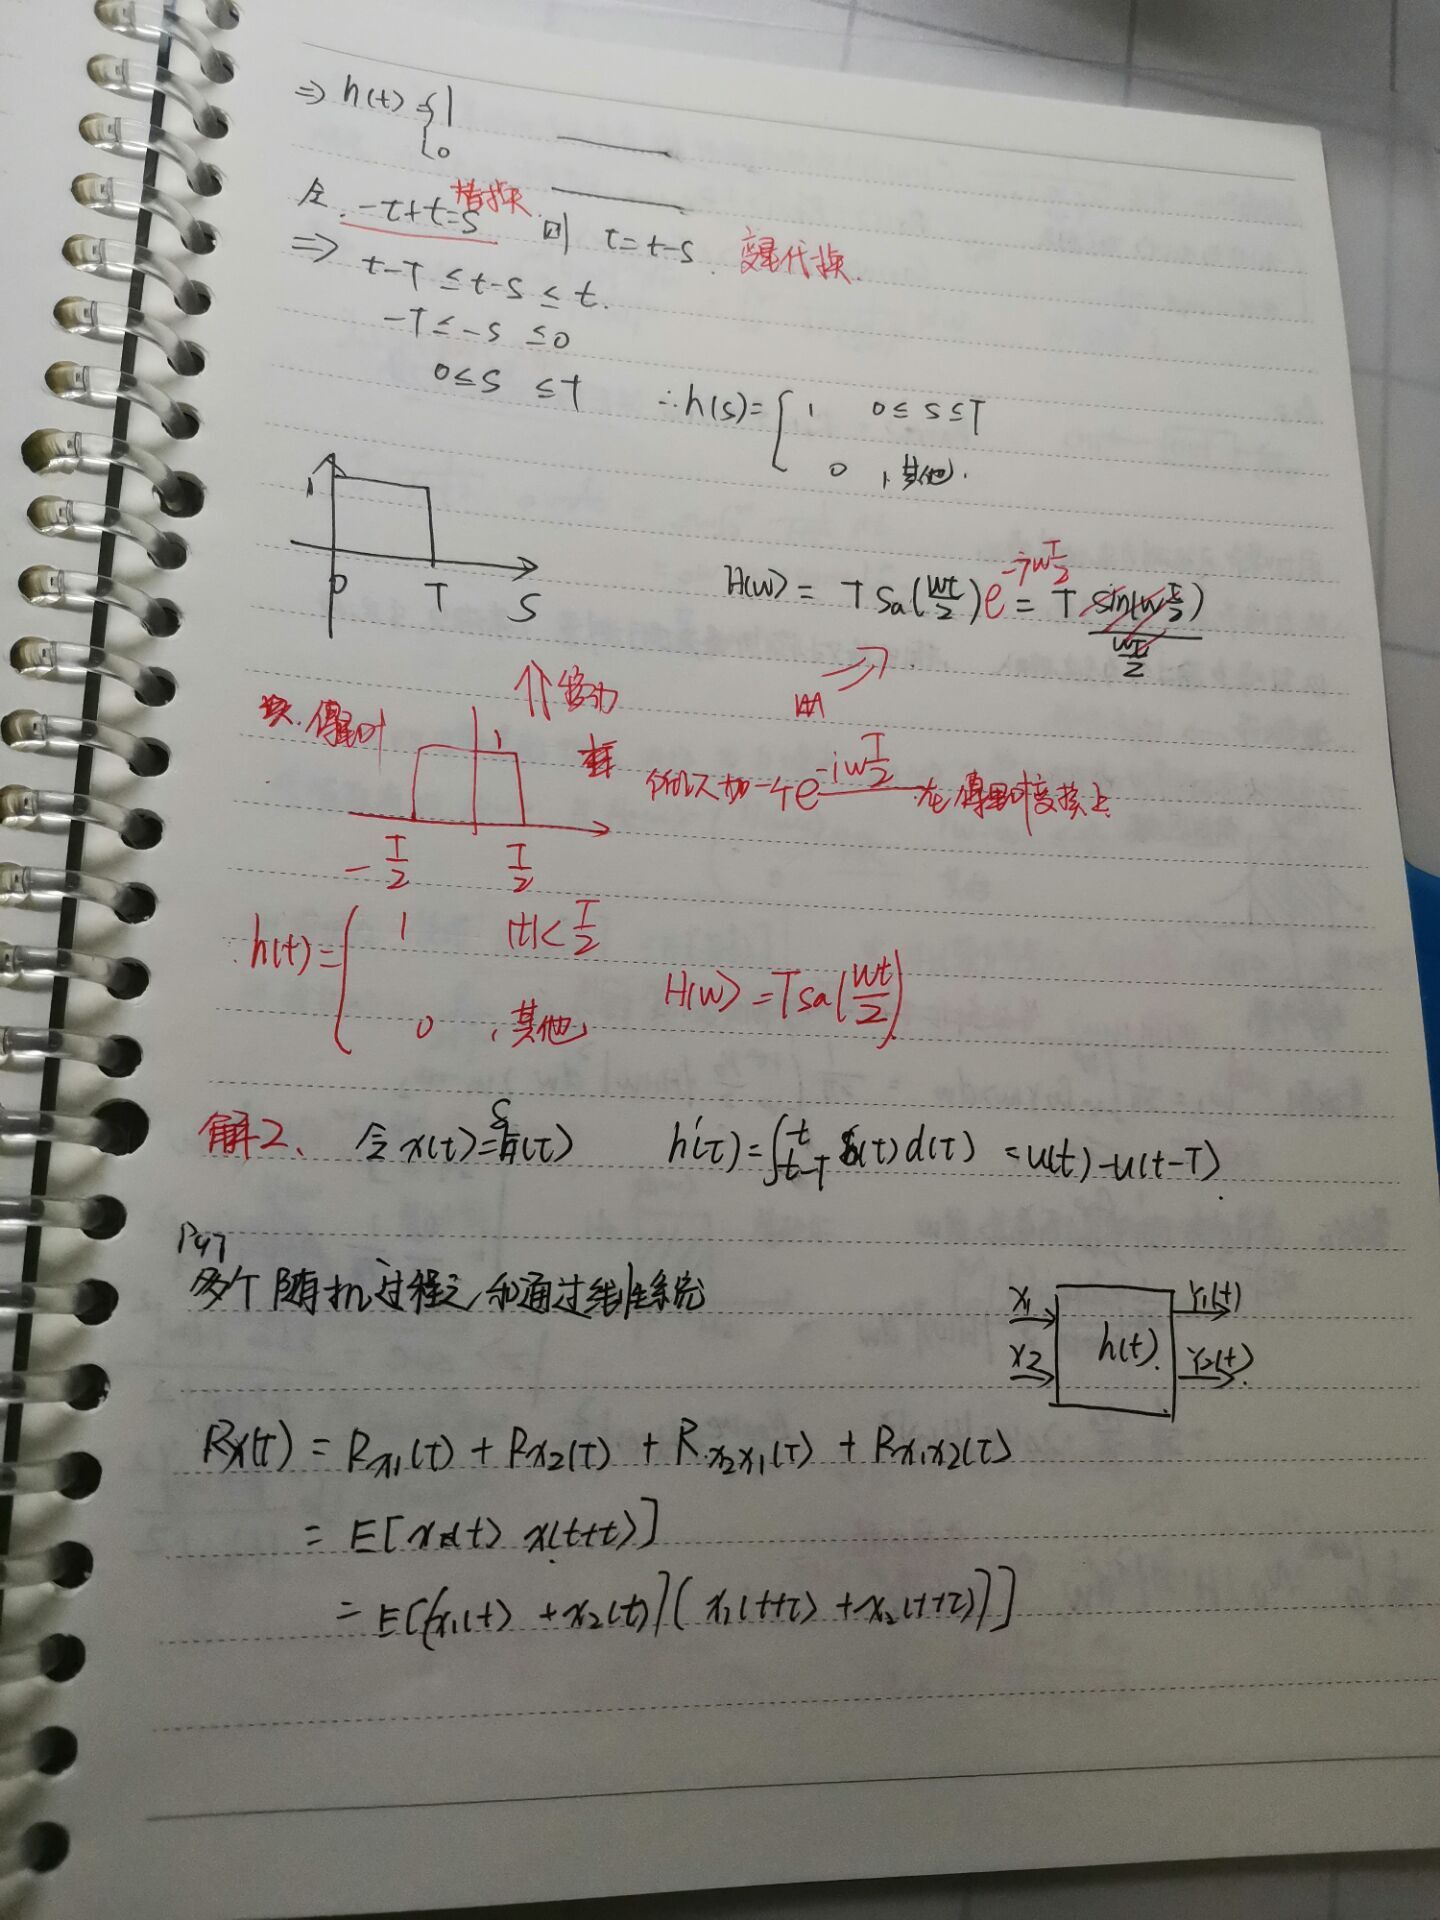 ⇒ h(t) = { 1
0
令 -τ+t=s 替换 则 τ=t-s. 变量代换.
⇒ t-T ≤ t-s ≤ t.
-T ≤ -s ≤ 0
0 ≤ s ≤ T ∴ h(s) = { 1 0 ≤ s ≤ T
0 , 其他.
1
0 T S
H(w) = T Sa(wt/2) e^{-jwT/2} = T sin(wT/2) / (wT/2)
移动
傅里叶
1
-T/2 T/2
所以加一个 e^{-jwT/2} 在傅里叶变换上
h(t) = { 1 |t| < T/2
0 , 其他,
H(w) = T Sa(wt/2)
解2、 令 x(t) = δ(t) h(τ) = ∫_{t-T}^{t} δ(τ) d(τ) = u(t) - u(t-T)
P47
多个随机过程之和通过线性系统
X1 Y1(t)
h(t)
X2 Y2(t)
Rx(τ) = Rx1(τ) + Rx2(τ) + Rx2x1(τ) + Rx1x2(τ)
= E[x(t) x(t+τ)]
= E[(x1(t) + x2(t))(x1(t+τ) + x2(t+τ))]